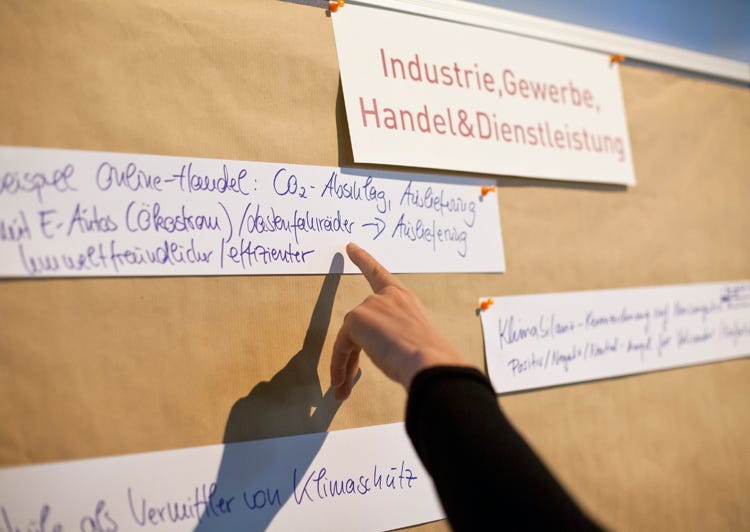 Industrie, Gewerbe,
Handel&Dienstleistung
Online-Handel: CO₂-Abschlag, Auslieferung
mit E-Autos (Ökostrom)/Lastenfahrräder → Auslieferung
umweltfreundlicher/effizienter
Klimabilanz-Kennzeichnung auf
Positiv/Negativ/Neutral
als Vermittler von Klimaschutz